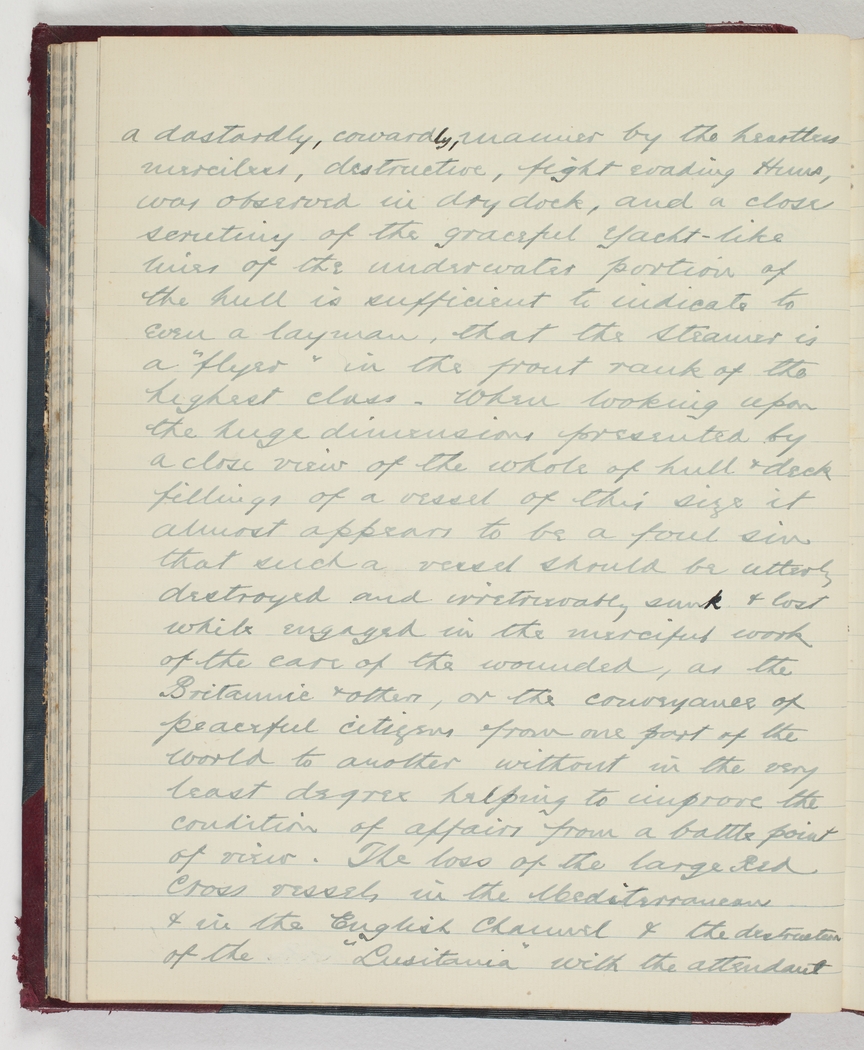 a dastardly, cowardly, manner by the heartless
merciless, destructive, fight evading Huns,
was observed in dry dock, and a close
scrutiny of the graceful Yacht-like
lines of the underwater portion of
the hull is sufficient to indicate to
even a layman, that the Steamer is
a "flyer" in the front rank of the
highest class - When looking upon
the huge dimensions presented by
a close view of the whole of hull & deck
fillings of a vessel of this size it
almost appears to be a foul sin
that such a vessel should be utterly
destroyed and irretrievably sunk & lost
while engaged in the merciful work
of the care of the wounded, as the
Britannic & others, or the conveyance of
peaceful citizens from one part of the
world to another without in the very
least degree helping to improve the
condition of affairs from a battle point
of view. The loss of the large Red
Cross vessels in the Mediterranean
& in the English Channel & the destruction
of the "Lusitania" with the attendant